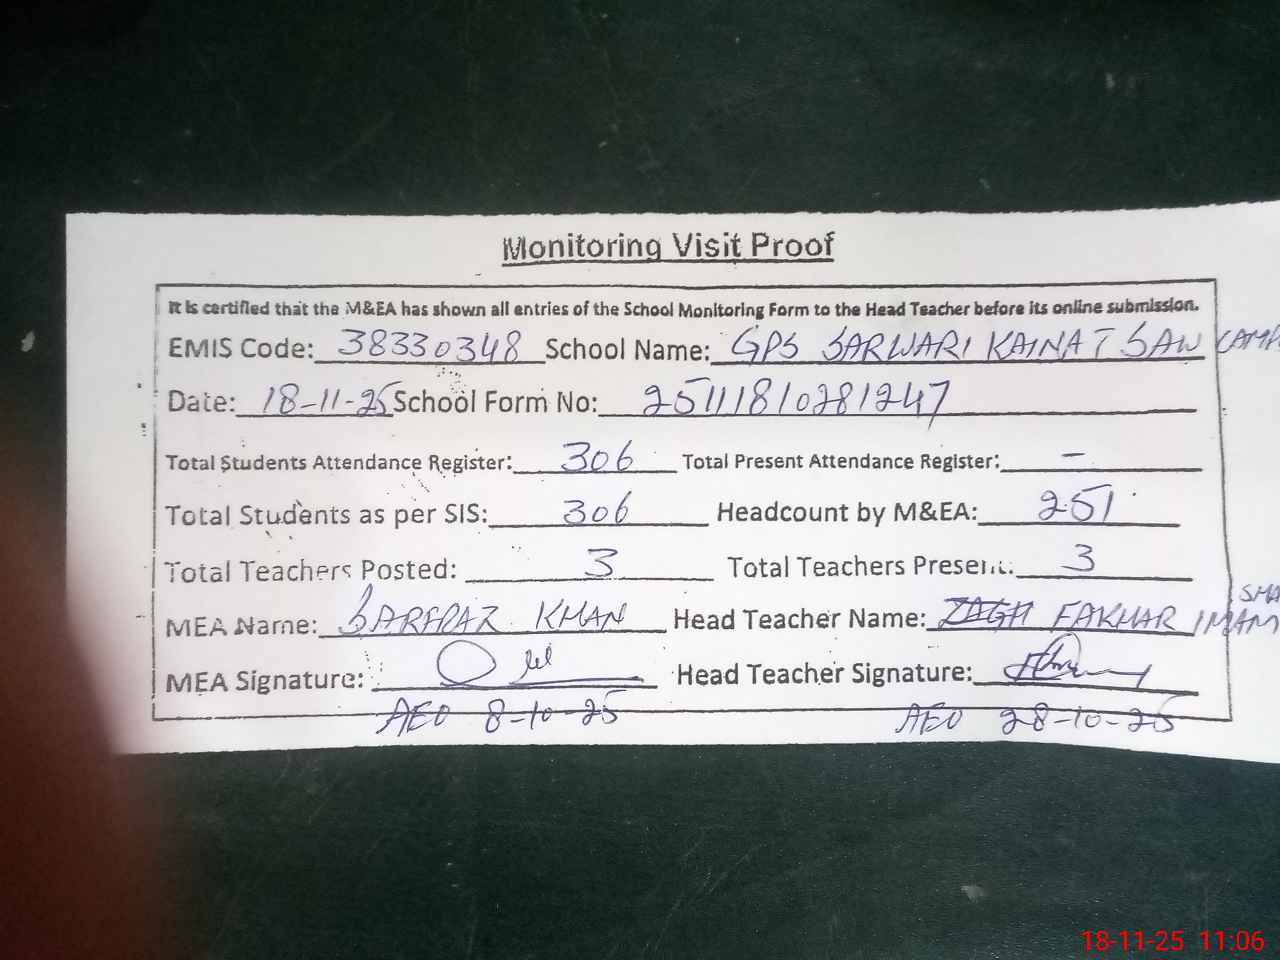 Monitoring Visit Proof
It is certified that the M&EA has shown all entries of the School Monitoring Form to the Head Teacher before its online submission.
EMIS Code: 38330348 School Name: GPS SARWARI KAINAT SAW CAMP
Date: 18-11-25 School Form No: 25111810281247
Total Students Attendance Register: 306 Total Present Attendance Register: -
Total Students as per SIS: 306 Headcount by M&EA: 251
Total Teachers Posted: 3 Total Teachers Present: 3
MEA Name: SARFRAZ KHAN Head Teacher Name: FAKHAR IMAM SHA
MEA Signature: Head Teacher Signature:
AEO 8-10-25 AEO 28-10-25
18-11-25 11:06